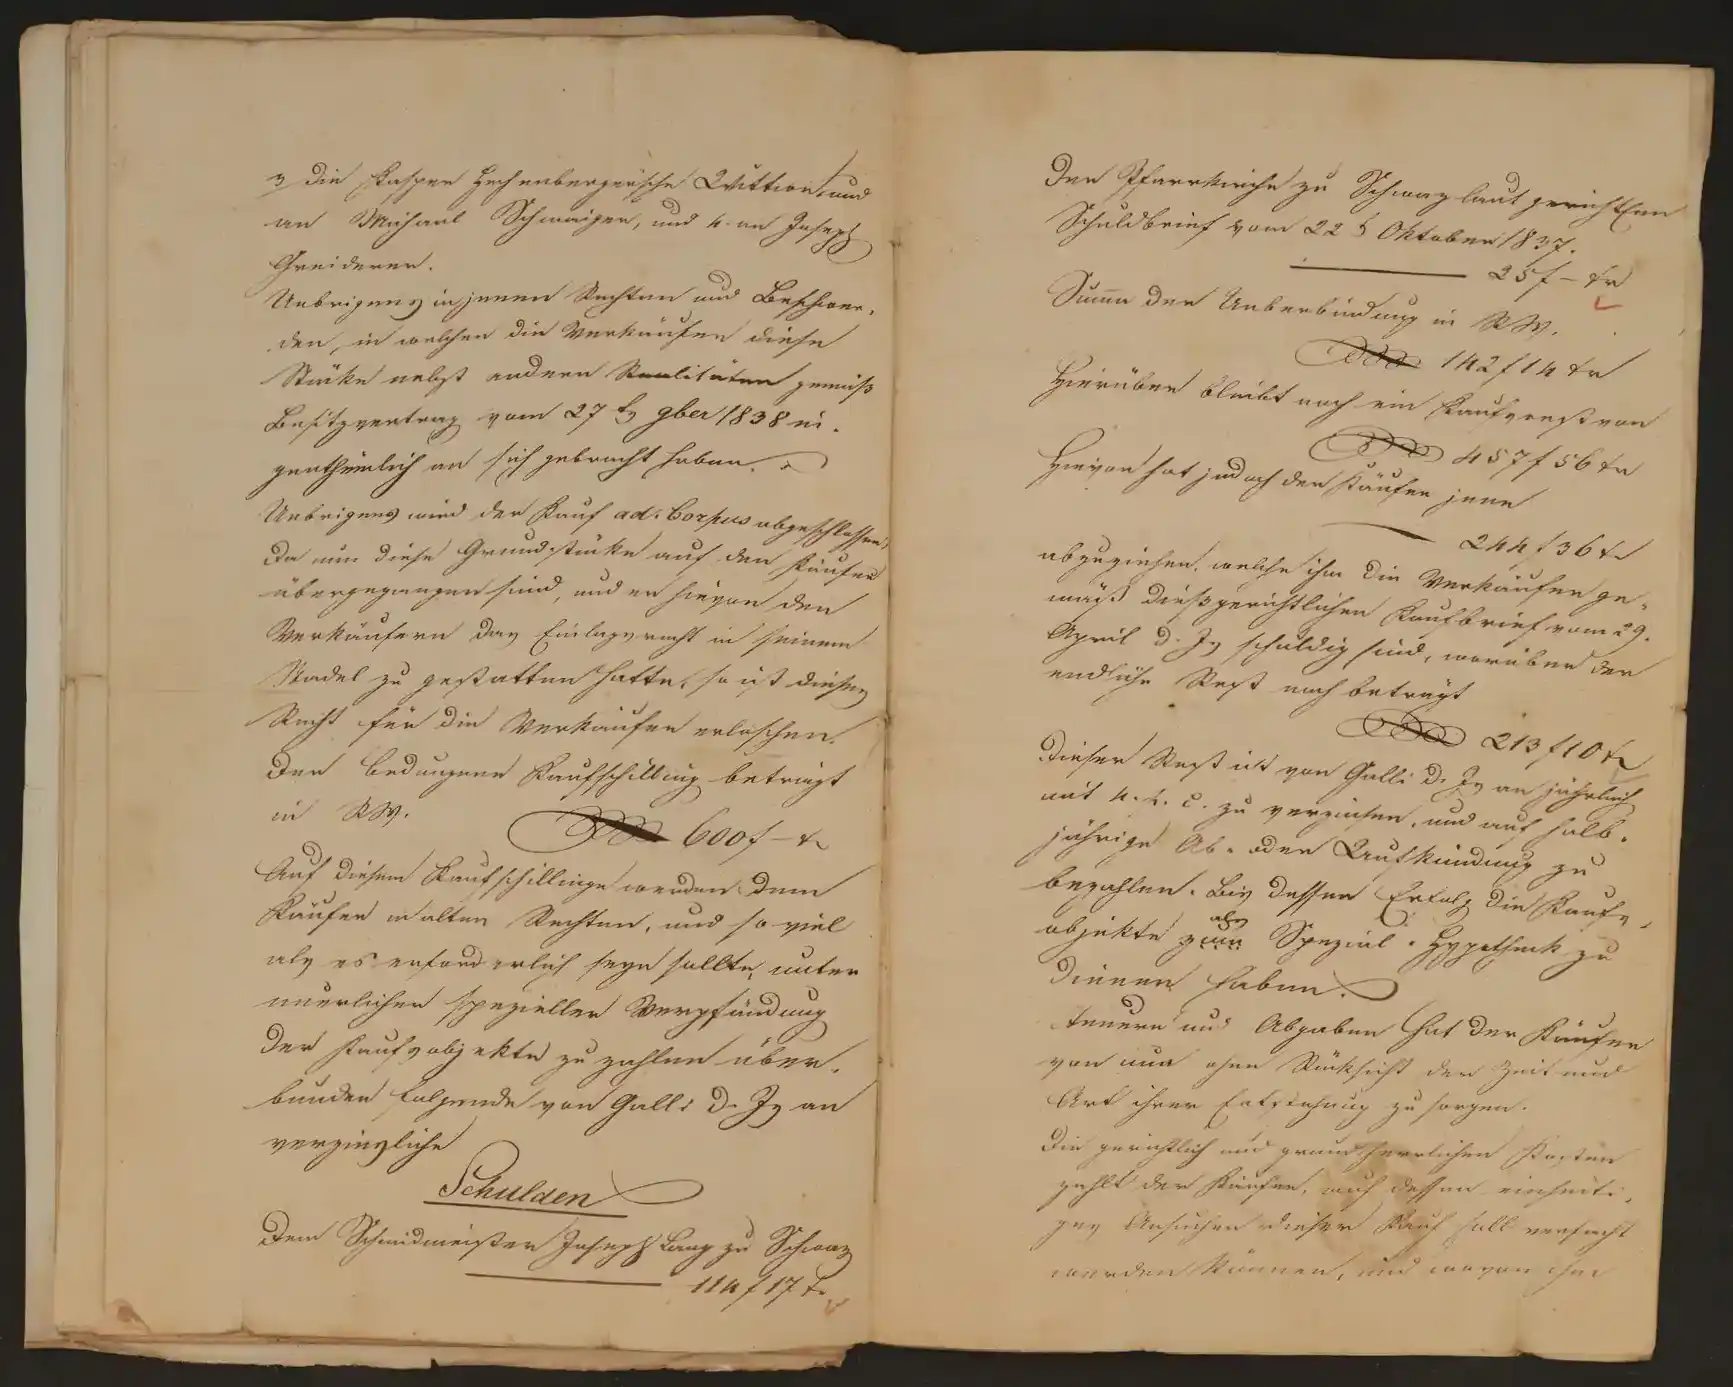 3 die Kasper Hechenbergersche Quittion und
an Michael Schwaiger, und 4. an Joseph
Greiderer.
Uebrigens in jenen Rechten und Beschwer-
den, in welchen die Verkäufer diese
Stücke nebst andern Realitäten gemäß
Besitzvertrag vom 27 t 9ber 1838 ei-
genthümlich an sich gebracht haben.
Uebrigens wird der Kauf ad Corpus abgeschlossen.
Da nun diese Grundstücke auf den Käufer
übergegangen sind, und er hievon den
Verkäufern das Einlagsrecht in seinem
Stadel zu gestatten hatte, so ist dieses
Recht für die Verkäufer erloschen.
Der bedungene Kaufschilling beträgt
in RW.
600 f – kr
Auf diesem Kaufschillinge werden dem
Käufer in alten Rechten, und so viel
als es erforderlich seyn sollte, unter
neuerlicher spezieller Verpfändung
der Kaufsobjekte zu zahlen über-
bunden folgende von Galli d. Js an
verzinsliche
Schulden
Dem Schmidmeister Joseph Lang zu Schwaz
114 f 17 kr
Der Pfarrkirche zu Schwaz laut gerichtlichen
Schuldbrief vom 22 t Oktober 1837.
25 f – kr
Summe der Ueberbindung in RW.
142 f 14 kr
Hierüber bleibt noch ein Kaufsrest von
457 f 56 kr
Hievon hat jedoch der Käufer jene
244 f 36 kr
abzuziehen, welche ihm die Verkäufer ge-
mäß dießgerichtlichen Kaufbrief vom 29.
April d. Js schuldig sind, worüber der
endliche Rest noch beträgt
213 f 10 kr
Dieser Rest ist von Galli d. Js an jährlich
mit 4. p. c. zu verzinsen, und auf halb-
jährige Ab- oder Aufkündung zu
bezahlen. Bis dessen Erfolg die Kaufs-
objekte als Spezial-Hypotheck zu
dienen haben.
Steuern und Abgaben hat der Käufer
von nun ohne Rücksicht der Zeit und
Art ihrer Entstehung zu sorgen.
Die gerichtlich und grundherrlichen Kosten
zahlt der Käufer, auf dessen einseiti-
ges Ansuchen dieser Kauf soll verfacht
werden können, und wovon ihm